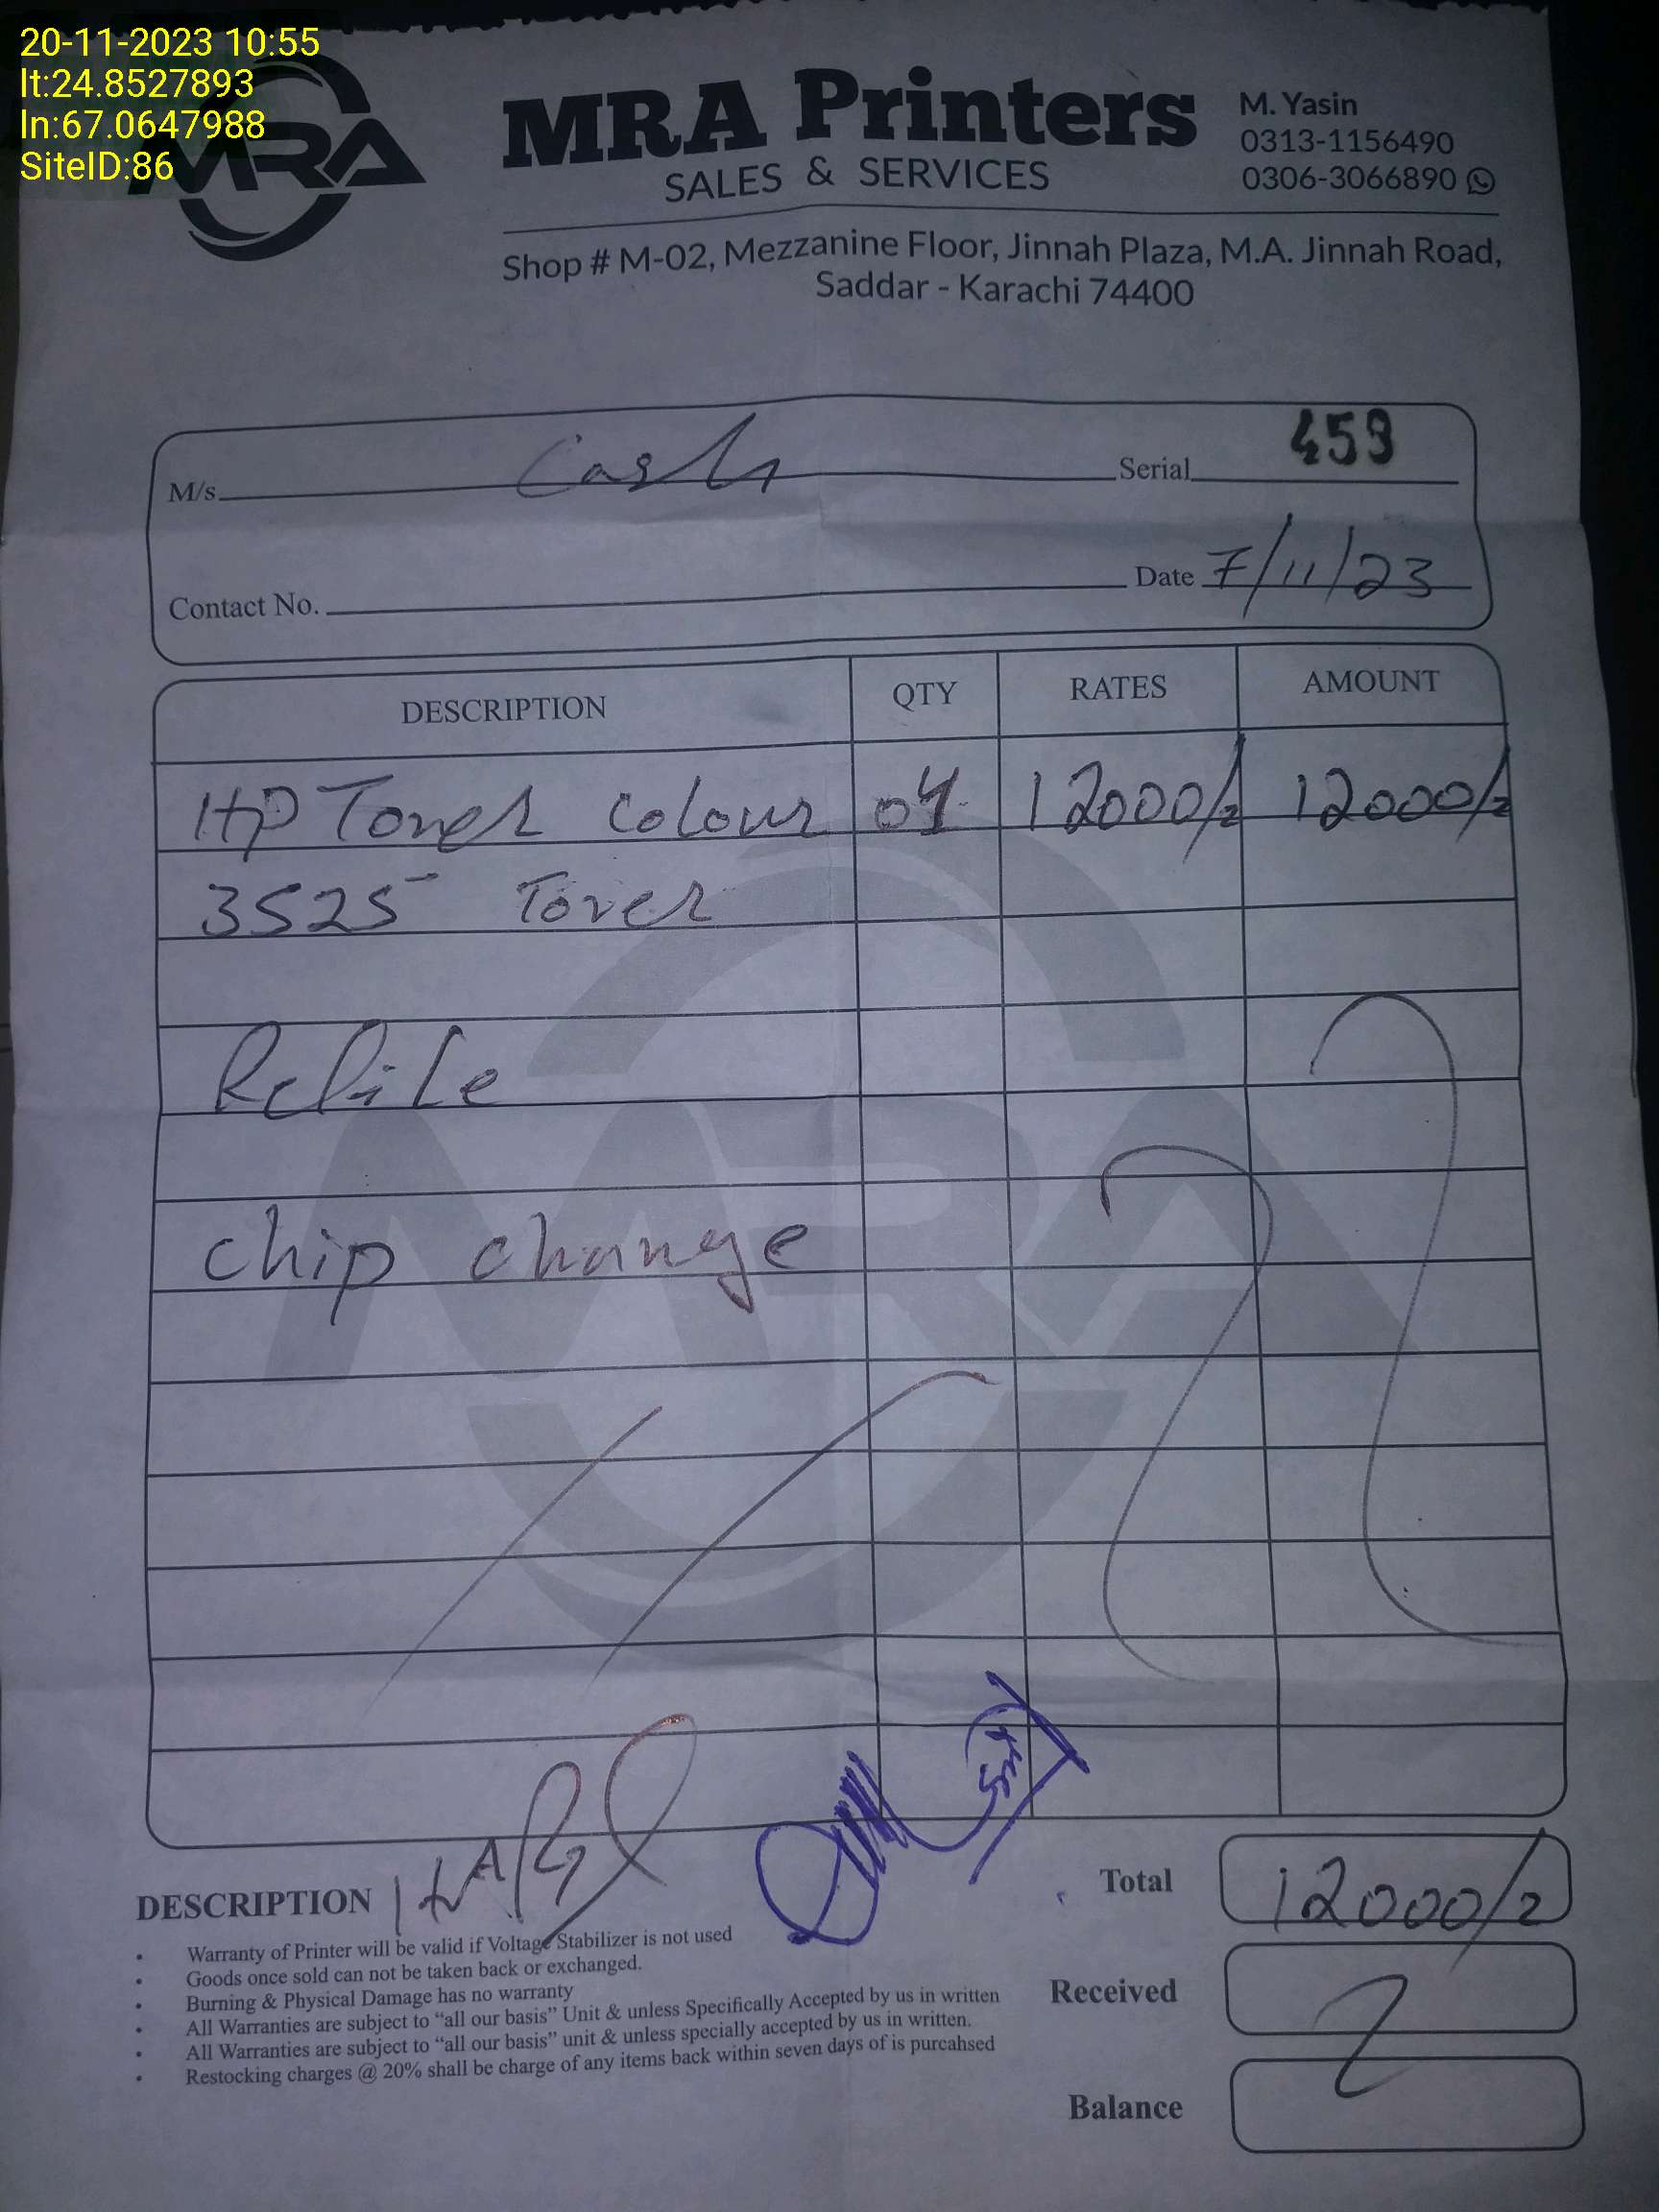 20-11-2023 10:55
lt:24.8527893
ln:67.0647988
SiteID:86
MRA
MRA Printers
SALES & SERVICES
M. Yasin
0313-1156490
0306-3066890
Shop # M-02, Mezzanine Floor, Jinnah Plaza, M.A. Jinnah Road,
Saddar - Karachi 74400
M/s. Cash Serial 459
Contact No. Date 7/11/23
DESCRIPTION QTY RATES AMOUNT
HP Toner Colour 04 12000/= 12000/=
3525 Toner
Refile
Chip change
MRA
Total 12000/=
DESCRIPTION
• Warranty of Printer will be valid if Voltage Stabilizer is not used
• Goods once sold can not be taken back or exchanged.
• Burning & Physical Damage has no warranty
• All Warranties are subject to “all our basis” Unit & unless Specifically Accepted by us in written
• All Warranties are subject to “all our basis” unit & unless specially accepted by us in written.
• Restocking charges @ 20% shall be charge of any items back within seven days of is purcahsed
Received
Balance